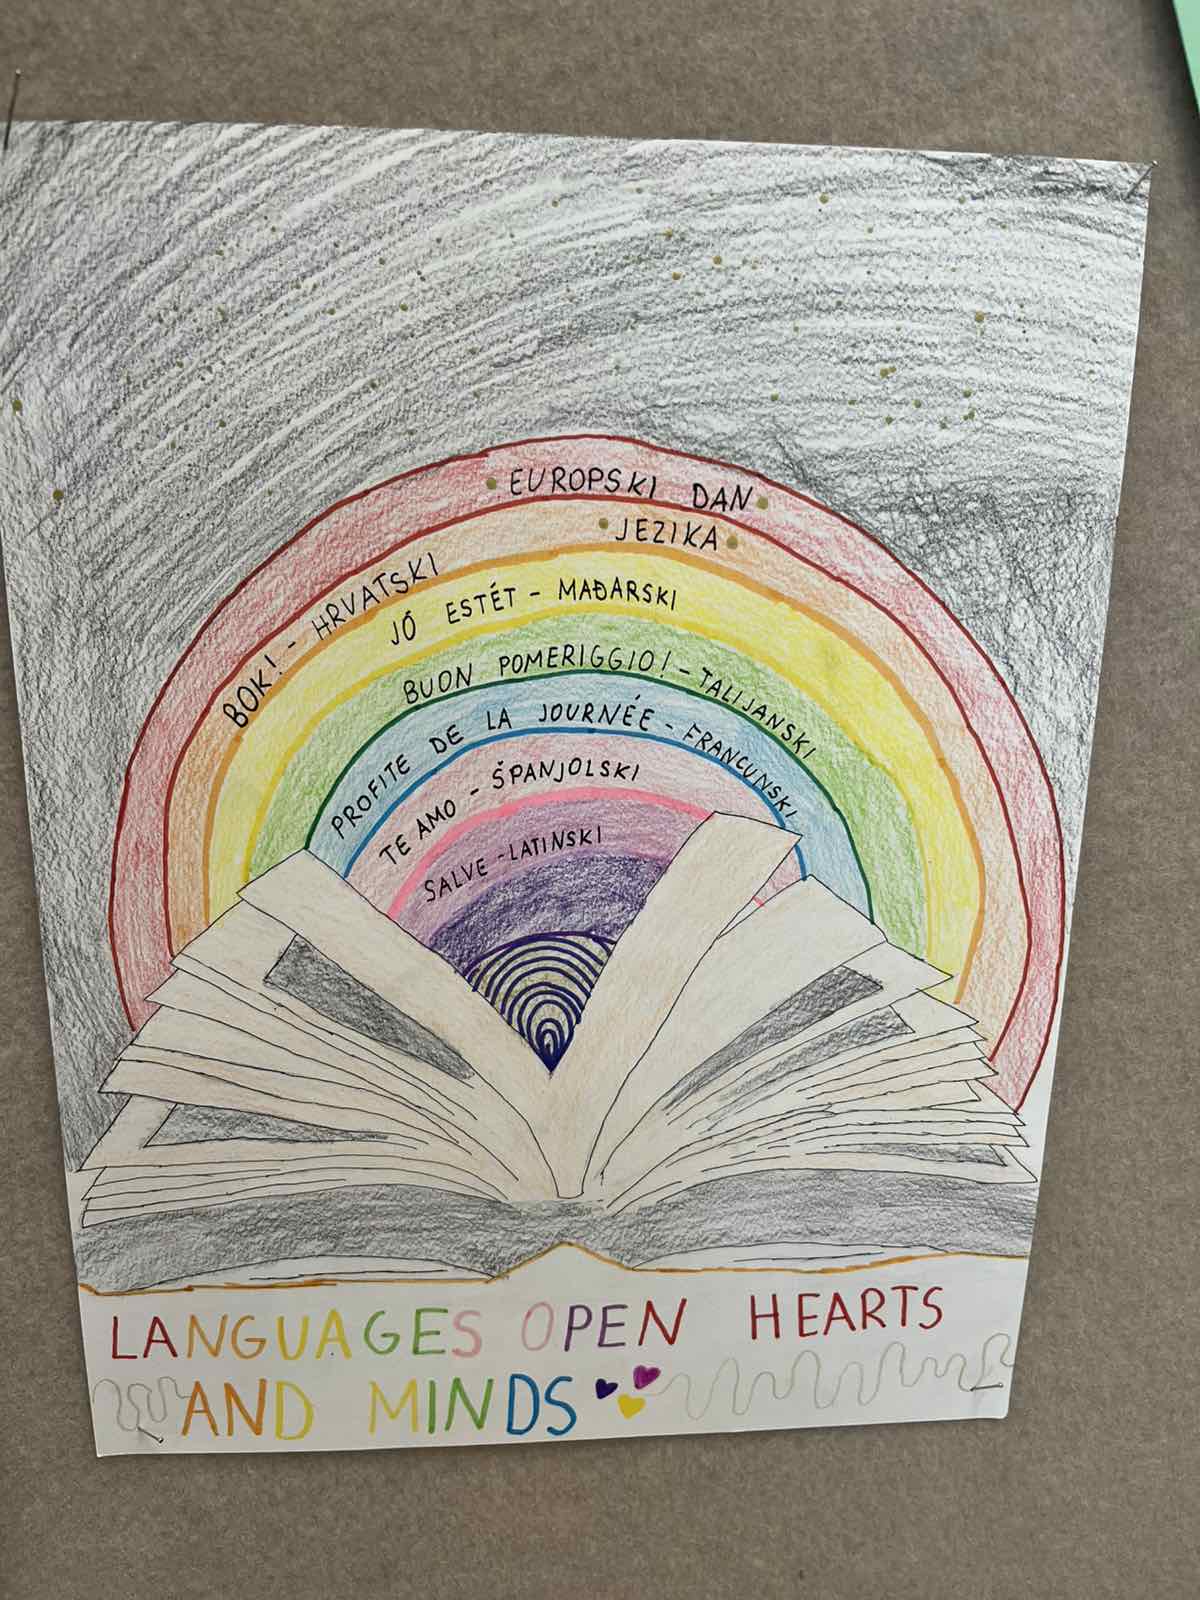 EUROPSKI DAN
JEZIKA
BOK! - HRVATSKI
JÓ ESTÉT - MAĐARSKI
BUON POMERIGGIO! - TALIJANSKI
PROFITE DE LA JOURNÉE - FRANCUNSKI
TE AMO - ŠPANJOLSKI
SALVE - LATINSKI
LANGUAGES OPEN HEARTS
AND MINDS